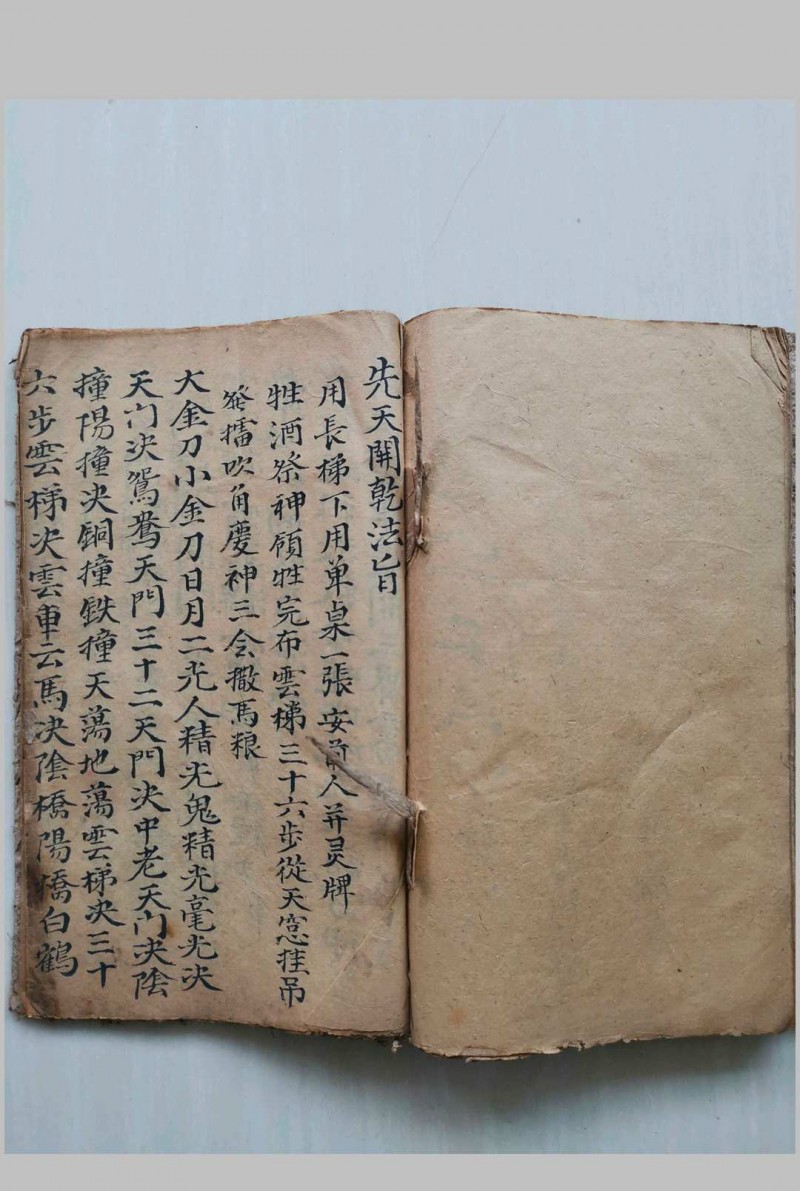 先天開乾法旨
用長梯下用单桌一張安前人并灵牌
牲酒祭神領牲完布雲梯三十六步從天窓挂吊
発擂吹角慶神三令撒馬粮
大金刀小金刀日月二光人精光鬼精光毫光决
天门决鴛鴦天門三十二天門决中老天门决陰
撞陽撞决铜撞鉄撞天蕩地蕩雲梯决三十
六步雲梯决雲車云馬决陰橋陽橋白鶴